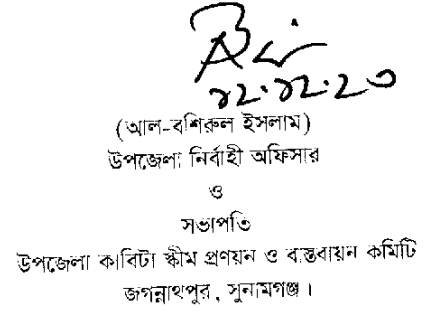 ১২.১২.২৩
(আল-বশিরুল ইসলাম)
উপজেলা নির্বাহী অফিসার
ও
সভাপতি
উপজেলা কাবিটা স্কীম প্রণয়ন ও বাস্তবায়ন কমিটি
জগন্নাথপুর, সুনামগঞ্জ।